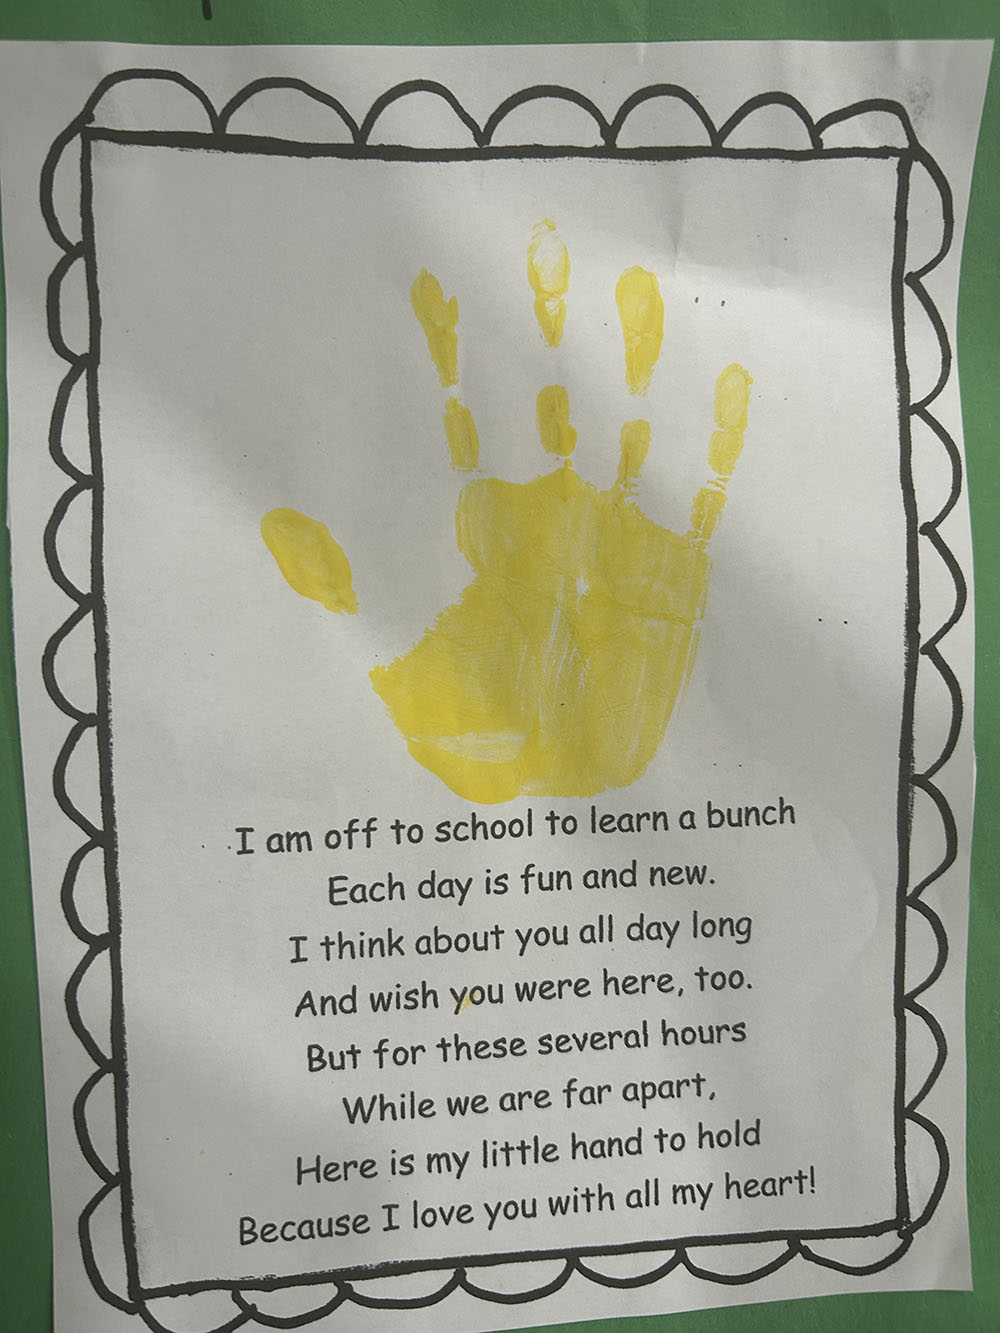 I am off to school to learn a bunch
Each day is fun and new.
I think about you all day long
And wish you were here, too.
But for these several hours
While we are far apart,
Here is my little hand to hold
Because I love you with all my heart!